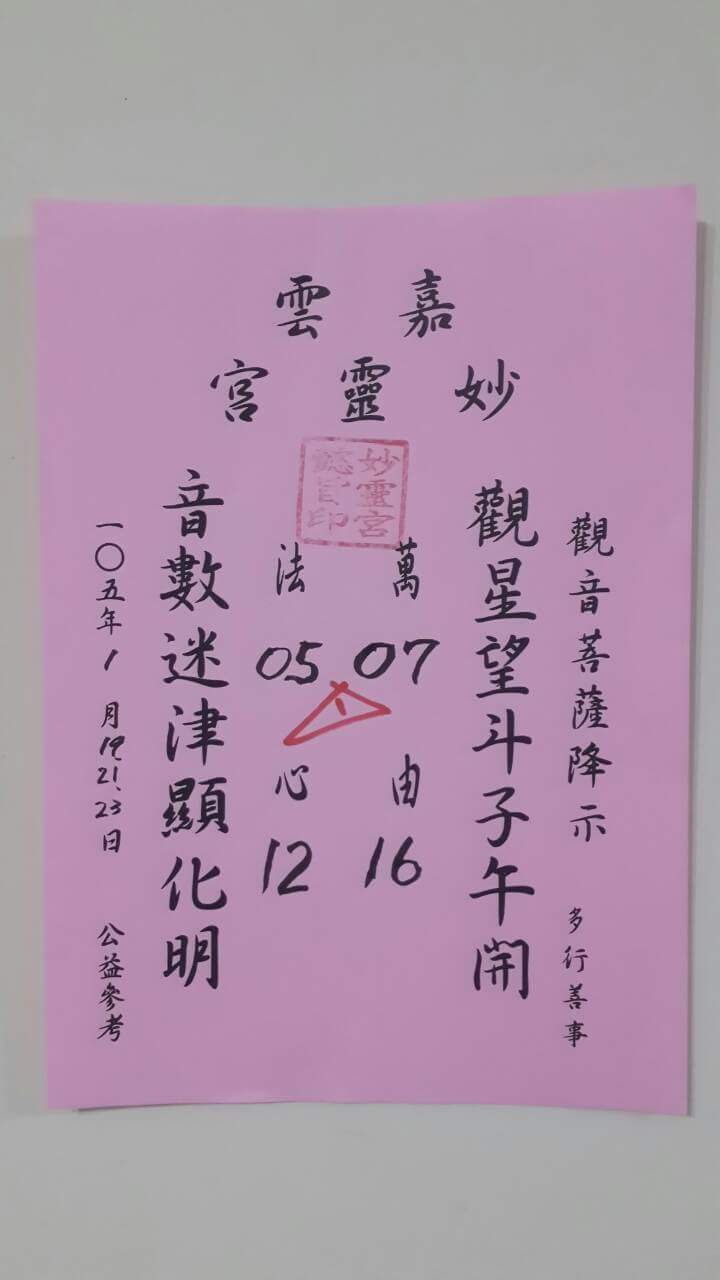 嘉雲
妙靈宮
妙靈宮
印
觀音菩薩降示 多行善事
觀星望斗子午開
萬 07 由 16
法 05 心 12
音數迷津顯化明
一〇五年1月19.21.23日 公益參考